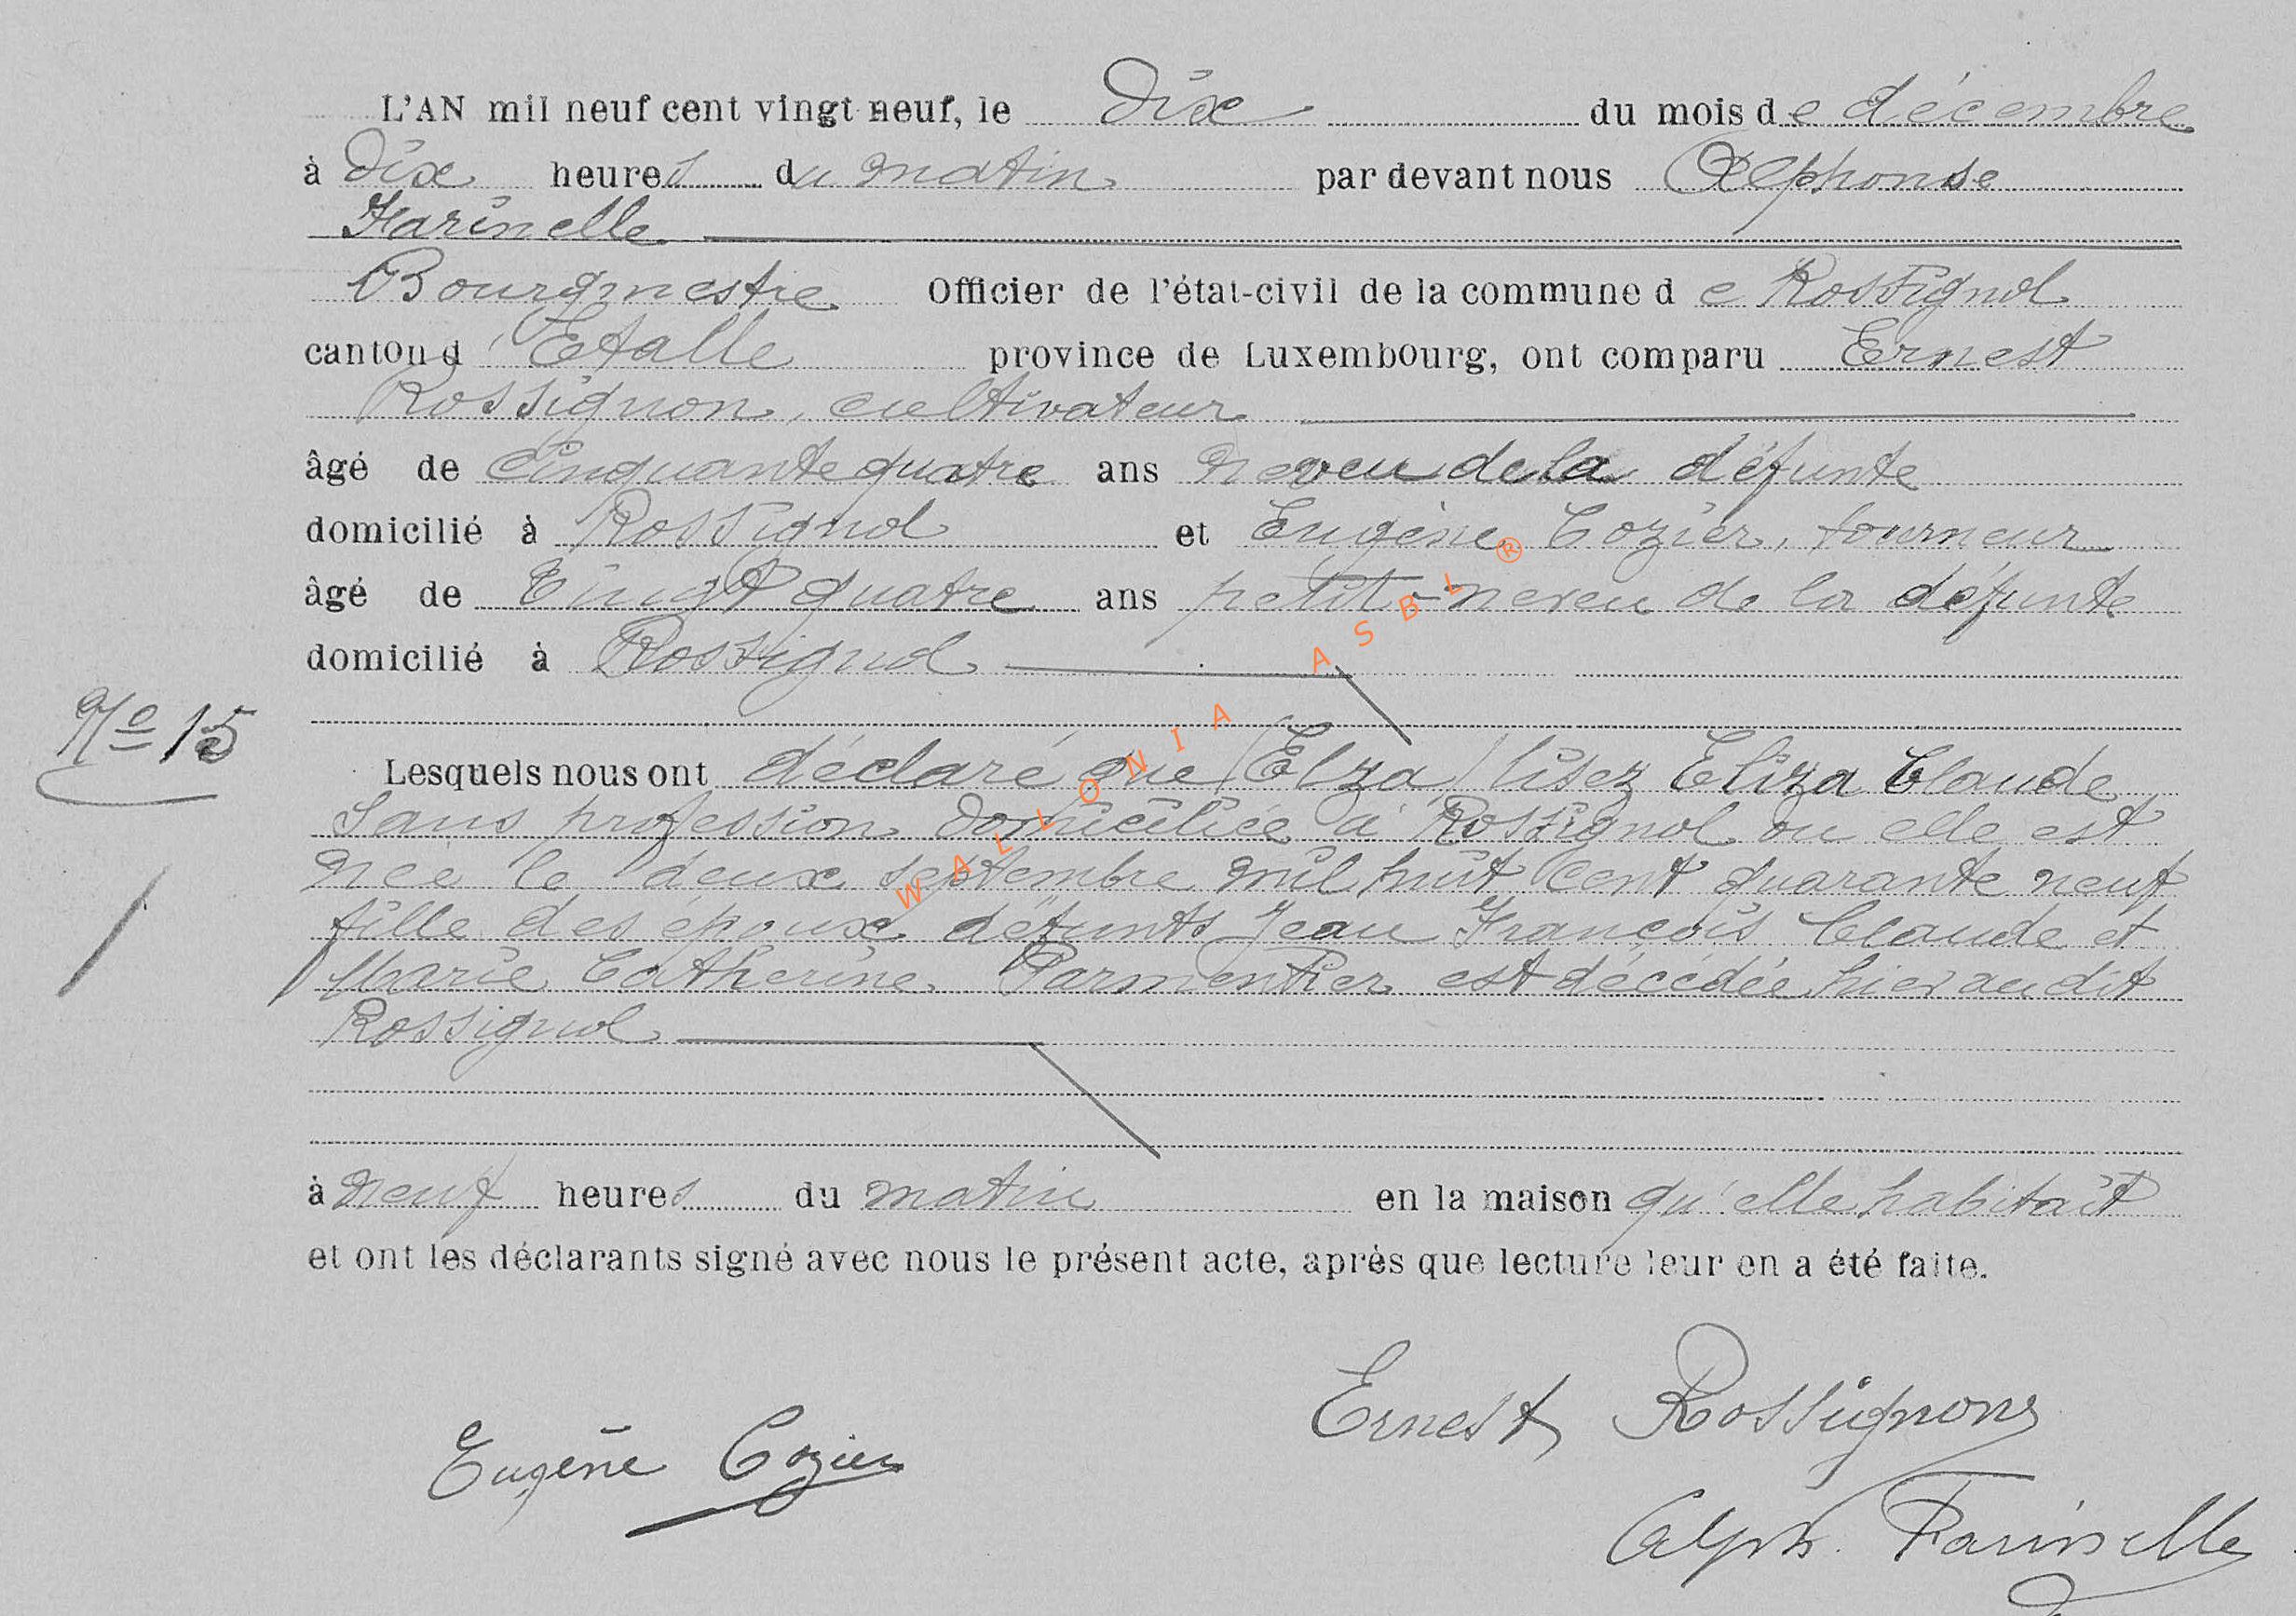 L'AN mil neuf cent vingt neuf, le Dix du mois de décembre
à Dix heures du matin par devant nous Alphonse
Farinelle
Bourgmestre Officier de l'état-civil de la commune de Rossignol
canton d'Etalle province de Luxembourg, ont comparu Ernest
Rossignon, cultivateur
âgé de Cinquante quatre ans neveu de la défunte
domicilié à Rossignol et Eugène Cozier, tourneur
âgé de Vingt quatre ans petit-neveu de la défunte
domicilié à Rossignol
No 15
Lesquels nous ont déclaré que (Elza) lisez Eliza Claude
Sans profession domiciliée à Rossignol ou elle est
née le deux septembre mil huit cent quarante neuf
fille des époux défunts Jean François Claude et
Marie Catherine Parmentier est décédée hier au dit
Rossignol
à neuf heures du matin en la maison qu'elle habitait
et ont les déclarants signé avec nous le présent acte, après que lecture leur en a été faite.
Ernest Rossignon
Eugène Cozier
Alph. Farinelle
WALLONIA ASBL ®